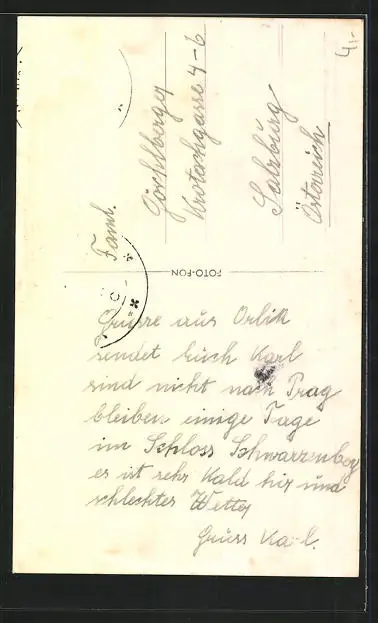 4,-
Faml.
Göschlberger
Krotachgasse 4-6
Salzburg
Österreich
FOTO-FON
Grüsse aus Orlik
sendet Euch Karl
sind nicht nach Prag
bleiben einige Tage
im Schloss Schwarzenberg
es ist sehr Kald hir und
schlechtes Wetter
Gruss Karl.